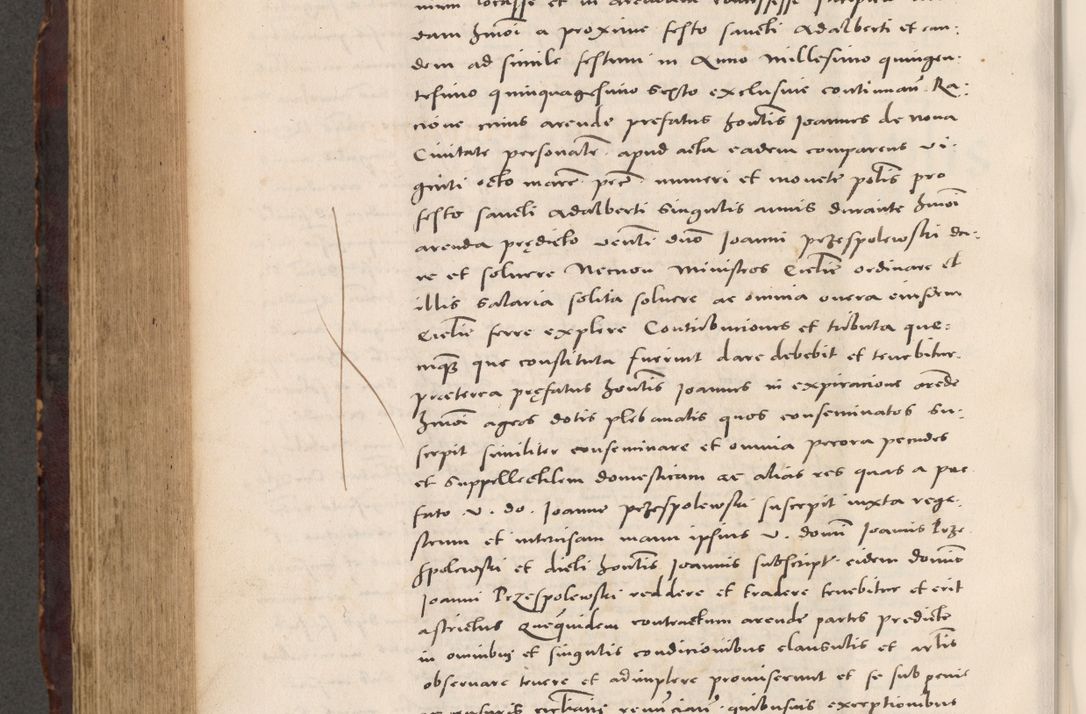 dam hmoi a proxime festo sancti Adalberti et ean-
dem ad simile festum in Anno Millesimo quingen-
tesimo quinquagesimo sexto exclusive continuan. Ra-
cione cuius arende prefatus hontis Joannes de nova
Civitate personalr. apud acta eadem comparens vi-
ginti octo marc. pec. numeri et monete polis pro
festo sancti Adalberti singulis annis durante hmoi
arenda prędicto venti dno Joanni przespolewski da-
re et solvere Necnon Ministros Ecclie ordinare et
illis salaria solita solvere ac omnia onera eiusdem
Ecclie ferre explere Contribuciones et tributa que-
cunque que constituta fuerint dare debebit et tenebitur.
praeterea pręfatus hontis Joannes in expiracione arende
hmoi agros dotis plebanalis quos conseminatos su-
scepit similiter conseminare et omnia pecora pecudes
et suppellectilem domesticam ac alias res quas a prae
fato v. do. Joanne przespolewski suscepit iuxta rege-
strum et intercisam manu ipsius v. domi Joannis Prze-
spolewski et dicti hontis Joannis subscript. eidem domino
Joanni Przespolewski reddere et tradere tenebitur et erit
astrictus Quequidem contractum arende partes predicte
in omnibus et singulis condicionibus clausulis et artlis
observare tenere et adimplere promiserunt et se sub penis
renunciaň. quibusvis exceptionibus